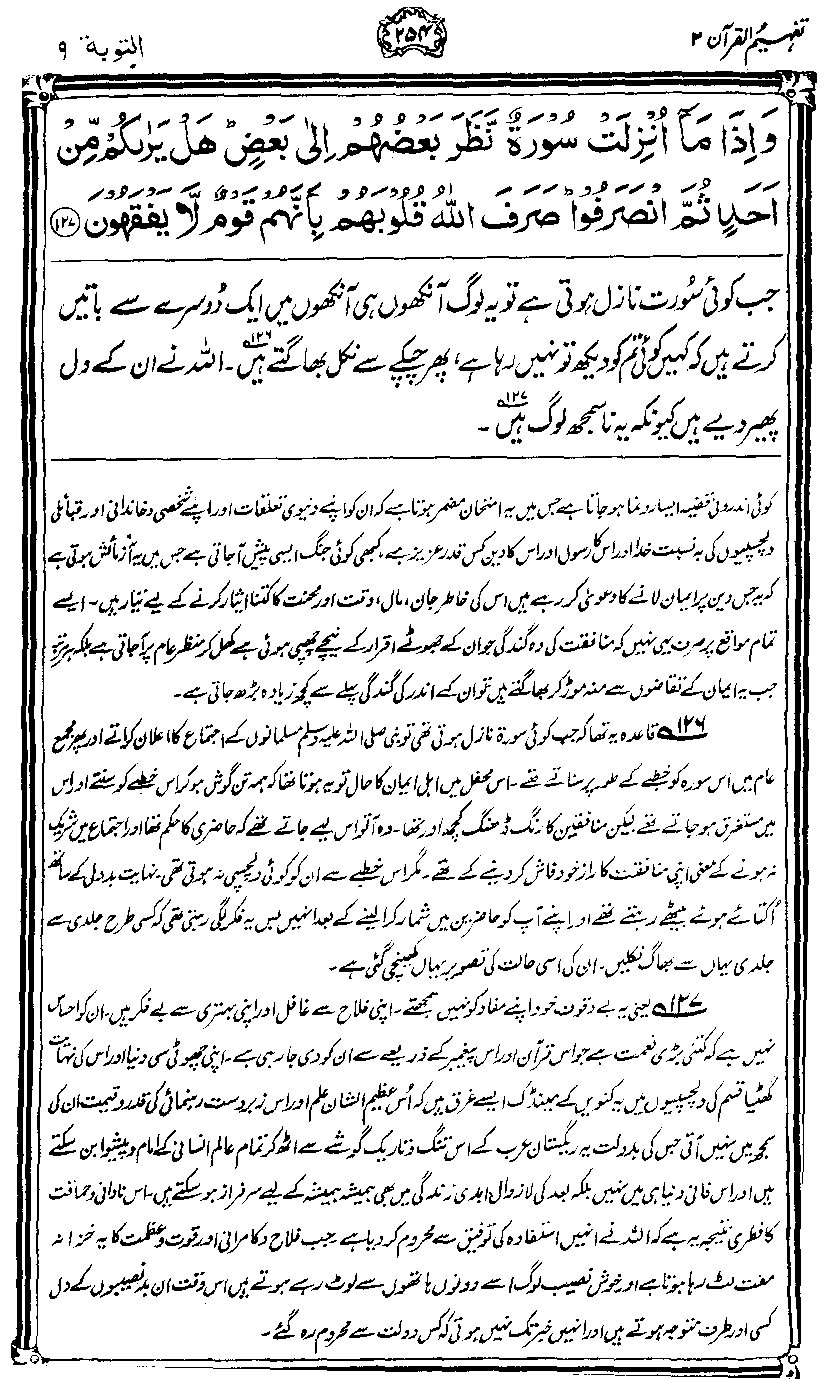 تفہیم القرآن ۲
۲۵۴
التوبۃ ۹
وَاِذَا مَاۤ اُنْزِلَتْ سُوْرَةٌ نَّظَرَ بَعْضُهُمْ اِلٰى بَعْضٍ ؕ هَلْ يَرٰىكُمْ مِّنْ
اَحَدٍ ثُمَّ انْصَرَفُوْا ؕ صَرَفَ اللّٰهُ قُلُوْبَهُمْ بِاَنَّهُمْ قَوْمٌ لَّا يَفْقَهُوْنَ ﴿۱۲۷﴾
جب کوئی سُورت نازل ہوتی ہے تو یہ لوگ آنکھوں ہی آنکھوں میں ایک دُوسرے سے باتیں
کرتے ہیں کہ کہیں کوئی تم کو دیکھ تو نہیں رہا ہے، پھر چپکے سے نکل بھاگتے ہیں۱۲۶۔ اللہ نے ان کے دل
پھیر دیے ہیں کیونکہ یہ ناسمجھ لوگ ہیں۱۲۷۔
کوئی اندرونی قضیہ ایسا رونما ہو جاتا ہے جس میں یہ امتحان مضمر ہوتا ہے کہ ان کو اپنے دنیوی تعلقات اور اپنے شخصی و خاندانی اور قبائلی
دلچسپیوں کی بہ نسبت خدا اور اس کا رسول اور اس کا دین کس قدر عزیز ہے، کبھی کوئی جنگ ایسی پیش آ جاتی ہے جس میں یہ آزمائش ہوتی ہے
کہ یہ جس دین پر ایمان لانے کا دعویٰ کر رہے ہیں اس کی خاطر جان، مال، وقت اور محنت کا کتنا ایثار کرنے کے لیے تیار ہیں۔ ایسے
تمام مواقع پر صرف یہی نہیں کہ منافقت کی وہ گندگی جو ان کے جھوٹے اقرار کے نیچے چھپی ہوئی ہے کھل کر منظر عام پر آ جاتی ہے بلکہ ہر مرتبہ
جب یہ ایمان کے تقاضوں سے منہ موڑ کر بھاگتے ہیں تو ان کے اندر کی گندگی پہلے سے کچھ زیادہ بڑھ جاتی ہے۔
۱۲۶ قاعدہ یہ تھا کہ جب کوئی سورۃ نازل ہوتی تھی تو نبی صلی اللہ علیہ وسلم مسلمانوں کے اجتماع کا اعلان کراتے اور پھر مجمع
عام میں اس سورہ کو خطبے کے طور پر سناتے تھے۔ اس محفل میں اہل ایمان کا حال تو یہ ہوتا تھا کہ ہمہ تن گوش ہو کر اس خطبے کو سنتے اور اس
میں مستغرق ہو جاتے تھے لیکن منافقین کا رنگ ڈھنگ کچھ اور تھا۔ وہ آ تو اس لیے جاتے تھے کہ حاضری کا حکم تھا اور اجتماع میں شریک
نہ ہونے کے معنی اپنی منافقت کا راز خود فاش کر دینے کے تھے۔ مگر اس خطبے سے ان کو کوئی دلچسپی نہ ہوتی تھی۔ نہایت بددلی کے ساتھ
اُکتائے ہوئے بیٹھے رہتے تھے اور اپنے آپ کو حاضرین میں شمار کرا لینے کے بعد انہیں بس یہ فکر لگی رہتی تھی کہ کسی طرح جلدی سے
جلدی یہاں سے بھاگ نکلیں۔ ان کی اسی حالت کی تصویر یہاں کھینچی گئی ہے۔
۱۲۷ یعنی یہ بے وقوف خود اپنے مفاد کو نہیں سمجھتے۔ اپنی فلاح سے غافل اور اپنی بہتری سے بے فکر ہیں۔ ان کو احساس
نہیں ہے کہ کتنی بڑی نعمت ہے جو اس قرآن اور اس پیغمبر کے ذریعے سے ان کو دی جا رہی ہے۔ اپنی چھوٹی سی دنیا اور اس کی نہایت
گھٹیا قسم کی دلچسپیوں میں یہ کنویں کے مینڈک ایسے غرق ہیں کہ اُس عظیم الشان علم اور اس زبردست رہنمائی کی قدر و قیمت ان کی
سمجھ میں نہیں آتی جس کی بدولت یہ ریگستان عرب کے اس تنگ و تاریک گوشے سے اٹھ کر تمام عالم انسانی کے امام و پیشوا بن سکتے
ہیں اور اس فانی دنیا ہی میں نہیں بلکہ بعد کی لازوال ابدی زندگی میں بھی ہمیشہ ہمیشہ کے لیے سرفراز ہو سکتے ہیں۔ اس نادانی و حماقت
کا فطری نتیجہ یہ ہے کہ اللہ نے انہیں استفادہ کی توفیق سے محروم کر دیا ہے۔ جب فلاح و کامرانی اور قوت و عظمت کا یہ خزانہ
مفت لٹ رہا ہوتا ہے اور خوش نصیب لوگ اسے دونوں ہاتھوں سے لوٹ رہے ہوتے ہیں اس وقت ان بدنصیبوں کے دل
کسی اور طرف متوجہ ہوتے ہیں اور انہیں خبر تک نہیں ہوتی کہ کس دولت سے محروم رہ گئے۔